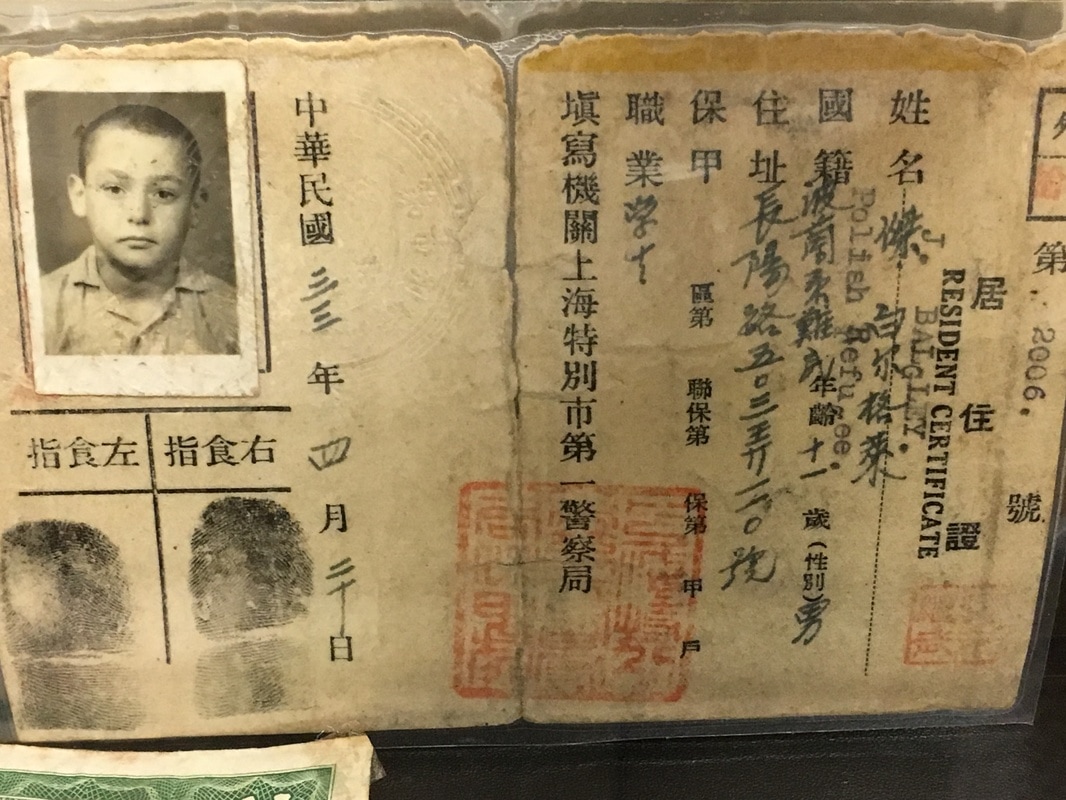 第 2006. 號
居住證
RESIDENT CERTIFICATE
J. BALGLEY.
姓名 傑. 白尔格萊
Polish Refugee.
國籍 波蘭 難民 年齡 十一 歲（性別）男
住址 長陽路五〇三弄 二〇 號
保甲 區第 聯保第 保第 甲 戶
職業 学生
填寫機關上海特別市第一警察局
中華民國 三三 年 四 月 二十 日
右食指
左食指